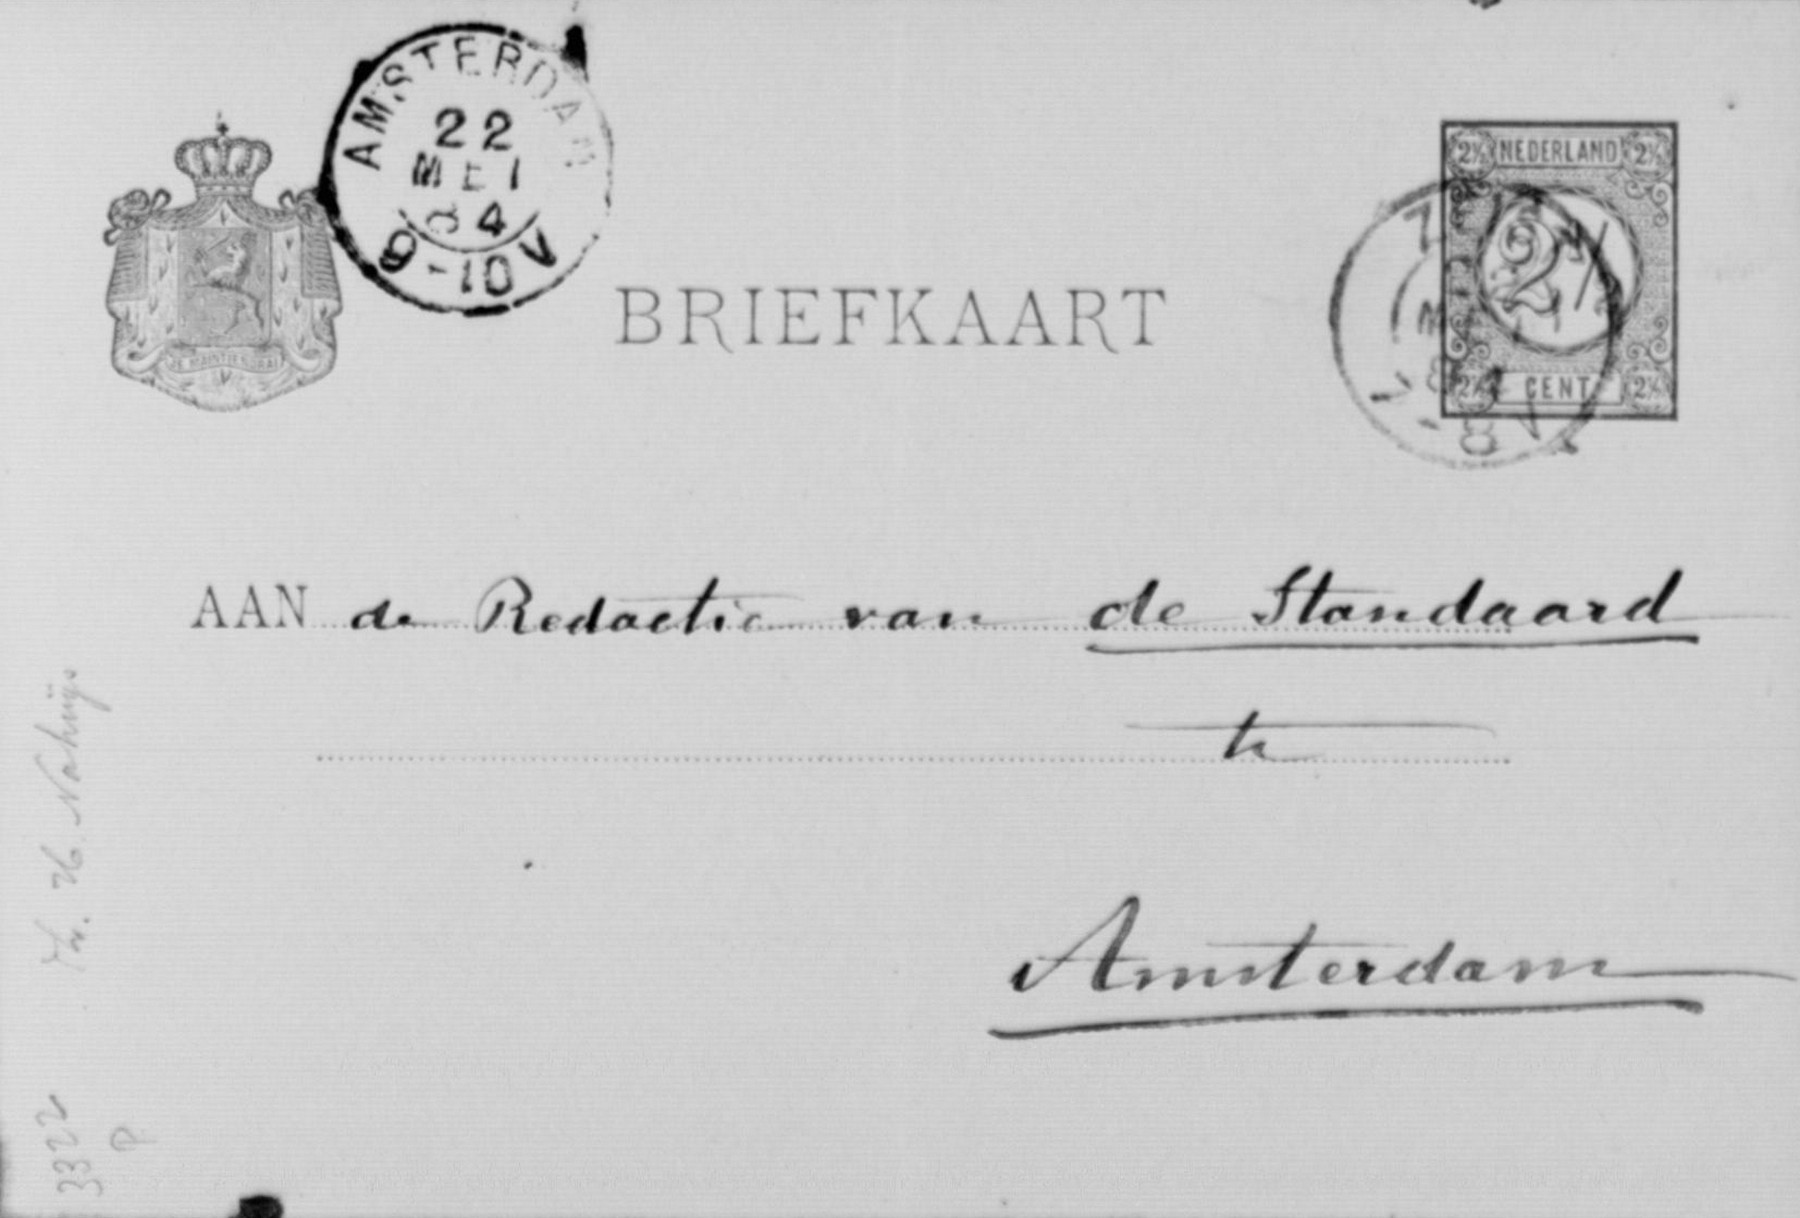 AMSTERDAM
22
MEI
84
9-10V
2½ NEDERLAND 2½
2½
2½ CENT 2½
7-8V
JE MAINTIENDRAI
BRIEFKAART
AAN de Redactie van de Standaard
te
Amsterdam
Nahuijs
3322
P